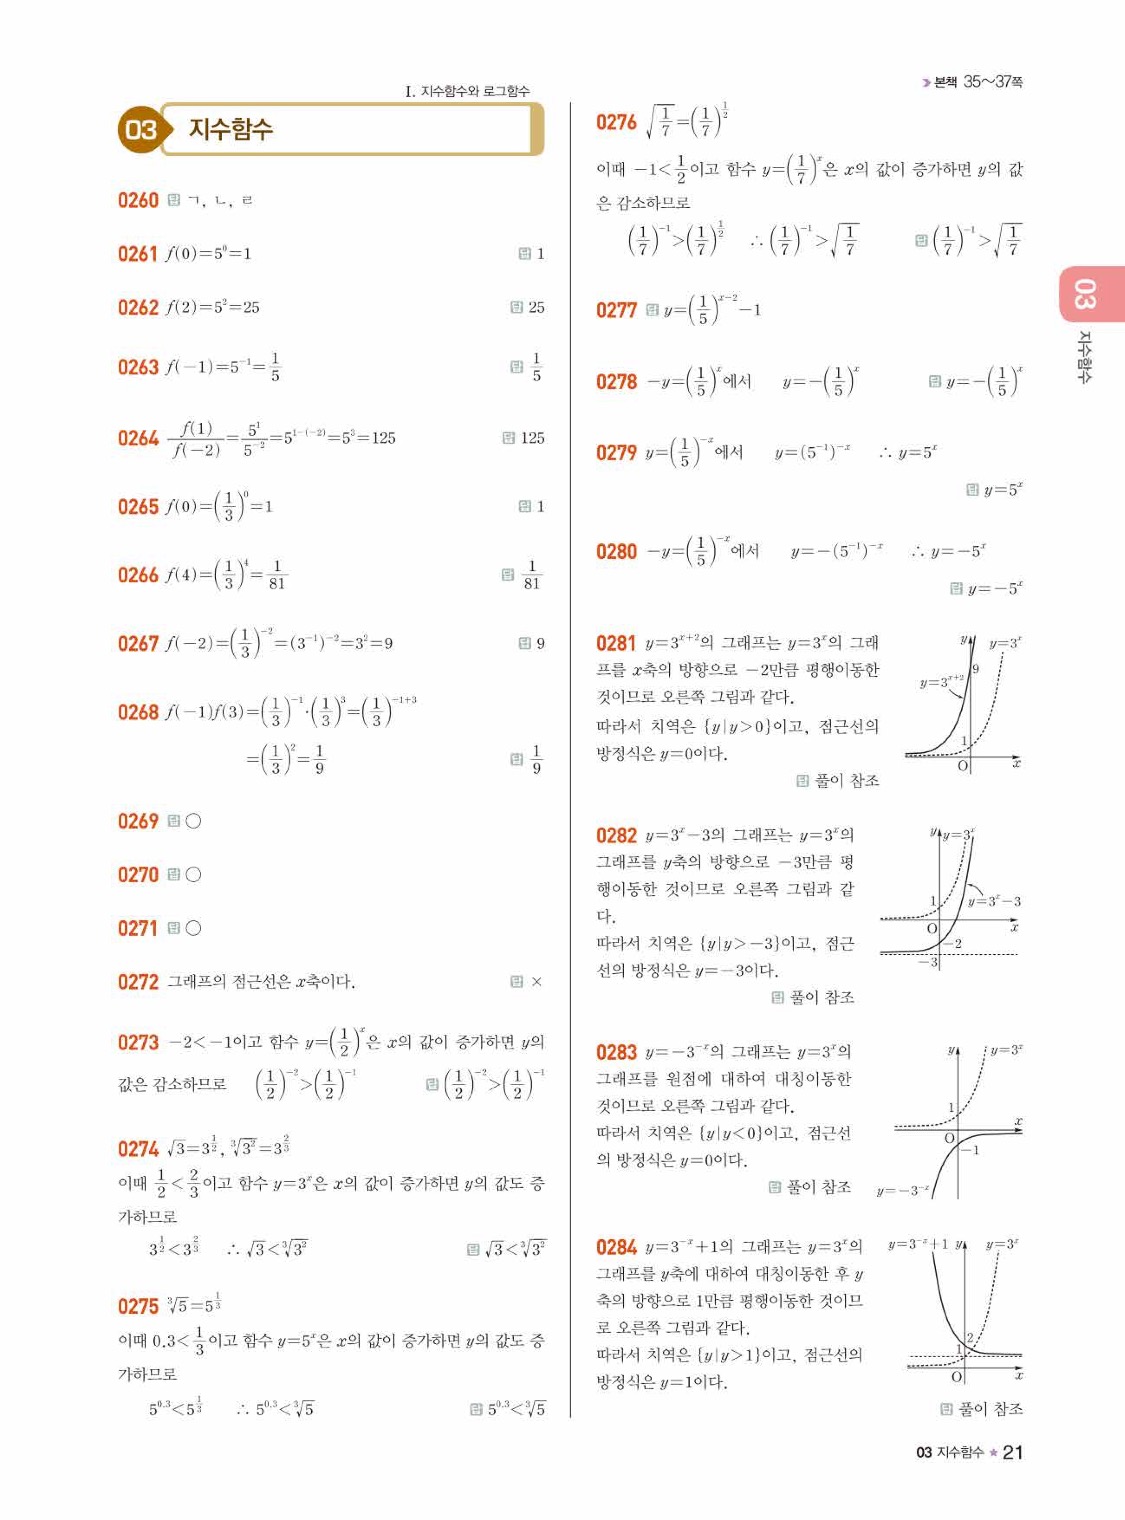 Ⅰ. 지수함수와 로그함수
03 지수함수
0260 답 ㄱ, ㄴ, ㄹ
0261 f(0)=5⁰=1 답 1
0262 f(2)=5²=25 답 25
0263 f(−1)=5⁻¹=1/5 답 1/5
0264 f(1)/f(−2)=5¹/5⁻²=5^{1−(−2)}=5³=125 답 125
0265 f(0)=(1/3)⁰=1 답 1
0266 f(4)=(1/3)⁴=1/81 답 1/81
0267 f(−2)=(1/3)⁻²=(3⁻¹)⁻²=3²=9 답 9
0268 f(−1)f(3)=(1/3)⁻¹·(1/3)³=(1/3)^{−1+3}
=(1/3)²=1/9 답 1/9
0269 답 ○
0270 답 ○
0271 답 ○
0272 그래프의 점근선은 x축이다. 답 ×
0273 −2<−1이고 함수 y=(1/2)^x은 x의 값이 증가하면 y의
값은 감소하므로 (1/2)⁻²>(1/2)⁻¹ 답 (1/2)⁻²>(1/2)⁻¹
0274 √3=3^{1/2}, ∛3²=3^{2/3}
이때 1/2<2/3이고 함수 y=3^x은 x의 값이 증가하면 y의 값도 증
가하므로
3^{1/2}<3^{2/3} ∴ √3<∛3² 답 √3<∛3²
0275 ∛5=5^{1/3}
이때 0.3<1/3이고 함수 y=5^x은 x의 값이 증가하면 y의 값도 증
가하므로
5^{0.3}<5^{1/3} ∴ 5^{0.3}<∛5 답 5^{0.3}<∛5
본책 35~37쪽
0276 √(1/7)=(1/7)^{1/2}
이때 −1<1/2이고 함수 y=(1/7)^x은 x의 값이 증가하면 y의 값
은 감소하므로
(1/7)⁻¹>(1/7)^{1/2} ∴ (1/7)⁻¹>√(1/7) 답 (1/7)⁻¹>√(1/7)
0277 답 y=(1/5)^{x−2}−1
0278 −y=(1/5)^x에서 y=−(1/5)^x 답 y=−(1/5)^x
0279 y=(1/5)^{−x}에서 y=(5⁻¹)^{−x} ∴ y=5^x
답 y=5^x
0280 −y=(1/5)^{−x}에서 y=−(5⁻¹)^{−x} ∴ y=−5^x
답 y=−5^x
0281 y=3^{x+2}의 그래프는 y=3^x의 그래
프를 x축의 방향으로 −2만큼 평행이동한
것이므로 오른쪽 그림과 같다.
따라서 치역은 {y|y>0}이고, 점근선의
방정식은 y=0이다.
답 풀이 참조
y y=3^x
9
y=3^{x+2}
1
O x
0282 y=3^x−3의 그래프는 y=3^x의
그래프를 y축의 방향으로 −3만큼 평
행이동한 것이므로 오른쪽 그림과 같
다.
따라서 치역은 {y|y>−3}이고, 점근
선의 방정식은 y=−3이다.
답 풀이 참조
y y=3^x
1 y=3^x−3
O x
−2
−3
0283 y=−3^{−x}의 그래프는 y=3^x의
그래프를 원점에 대하여 대칭이동한
것이므로 오른쪽 그림과 같다.
따라서 치역은 {y|y<0}이고, 점근선
의 방정식은 y=0이다.
답 풀이 참조
y y=3^x
1
x
O
−1
y=−3^{−x}
0284 y=3^{−x}+1의 그래프는 y=3^x의
그래프를 y축에 대하여 대칭이동한 후 y
축의 방향으로 1만큼 평행이동한 것이므
로 오른쪽 그림과 같다.
따라서 치역은 {y|y>1}이고, 점근선의
방정식은 y=1이다.
답 풀이 참조
y=3^{−x}+1 y y=3^x
2
1
O x
03
지수함수
03 지수함수 ★ 21